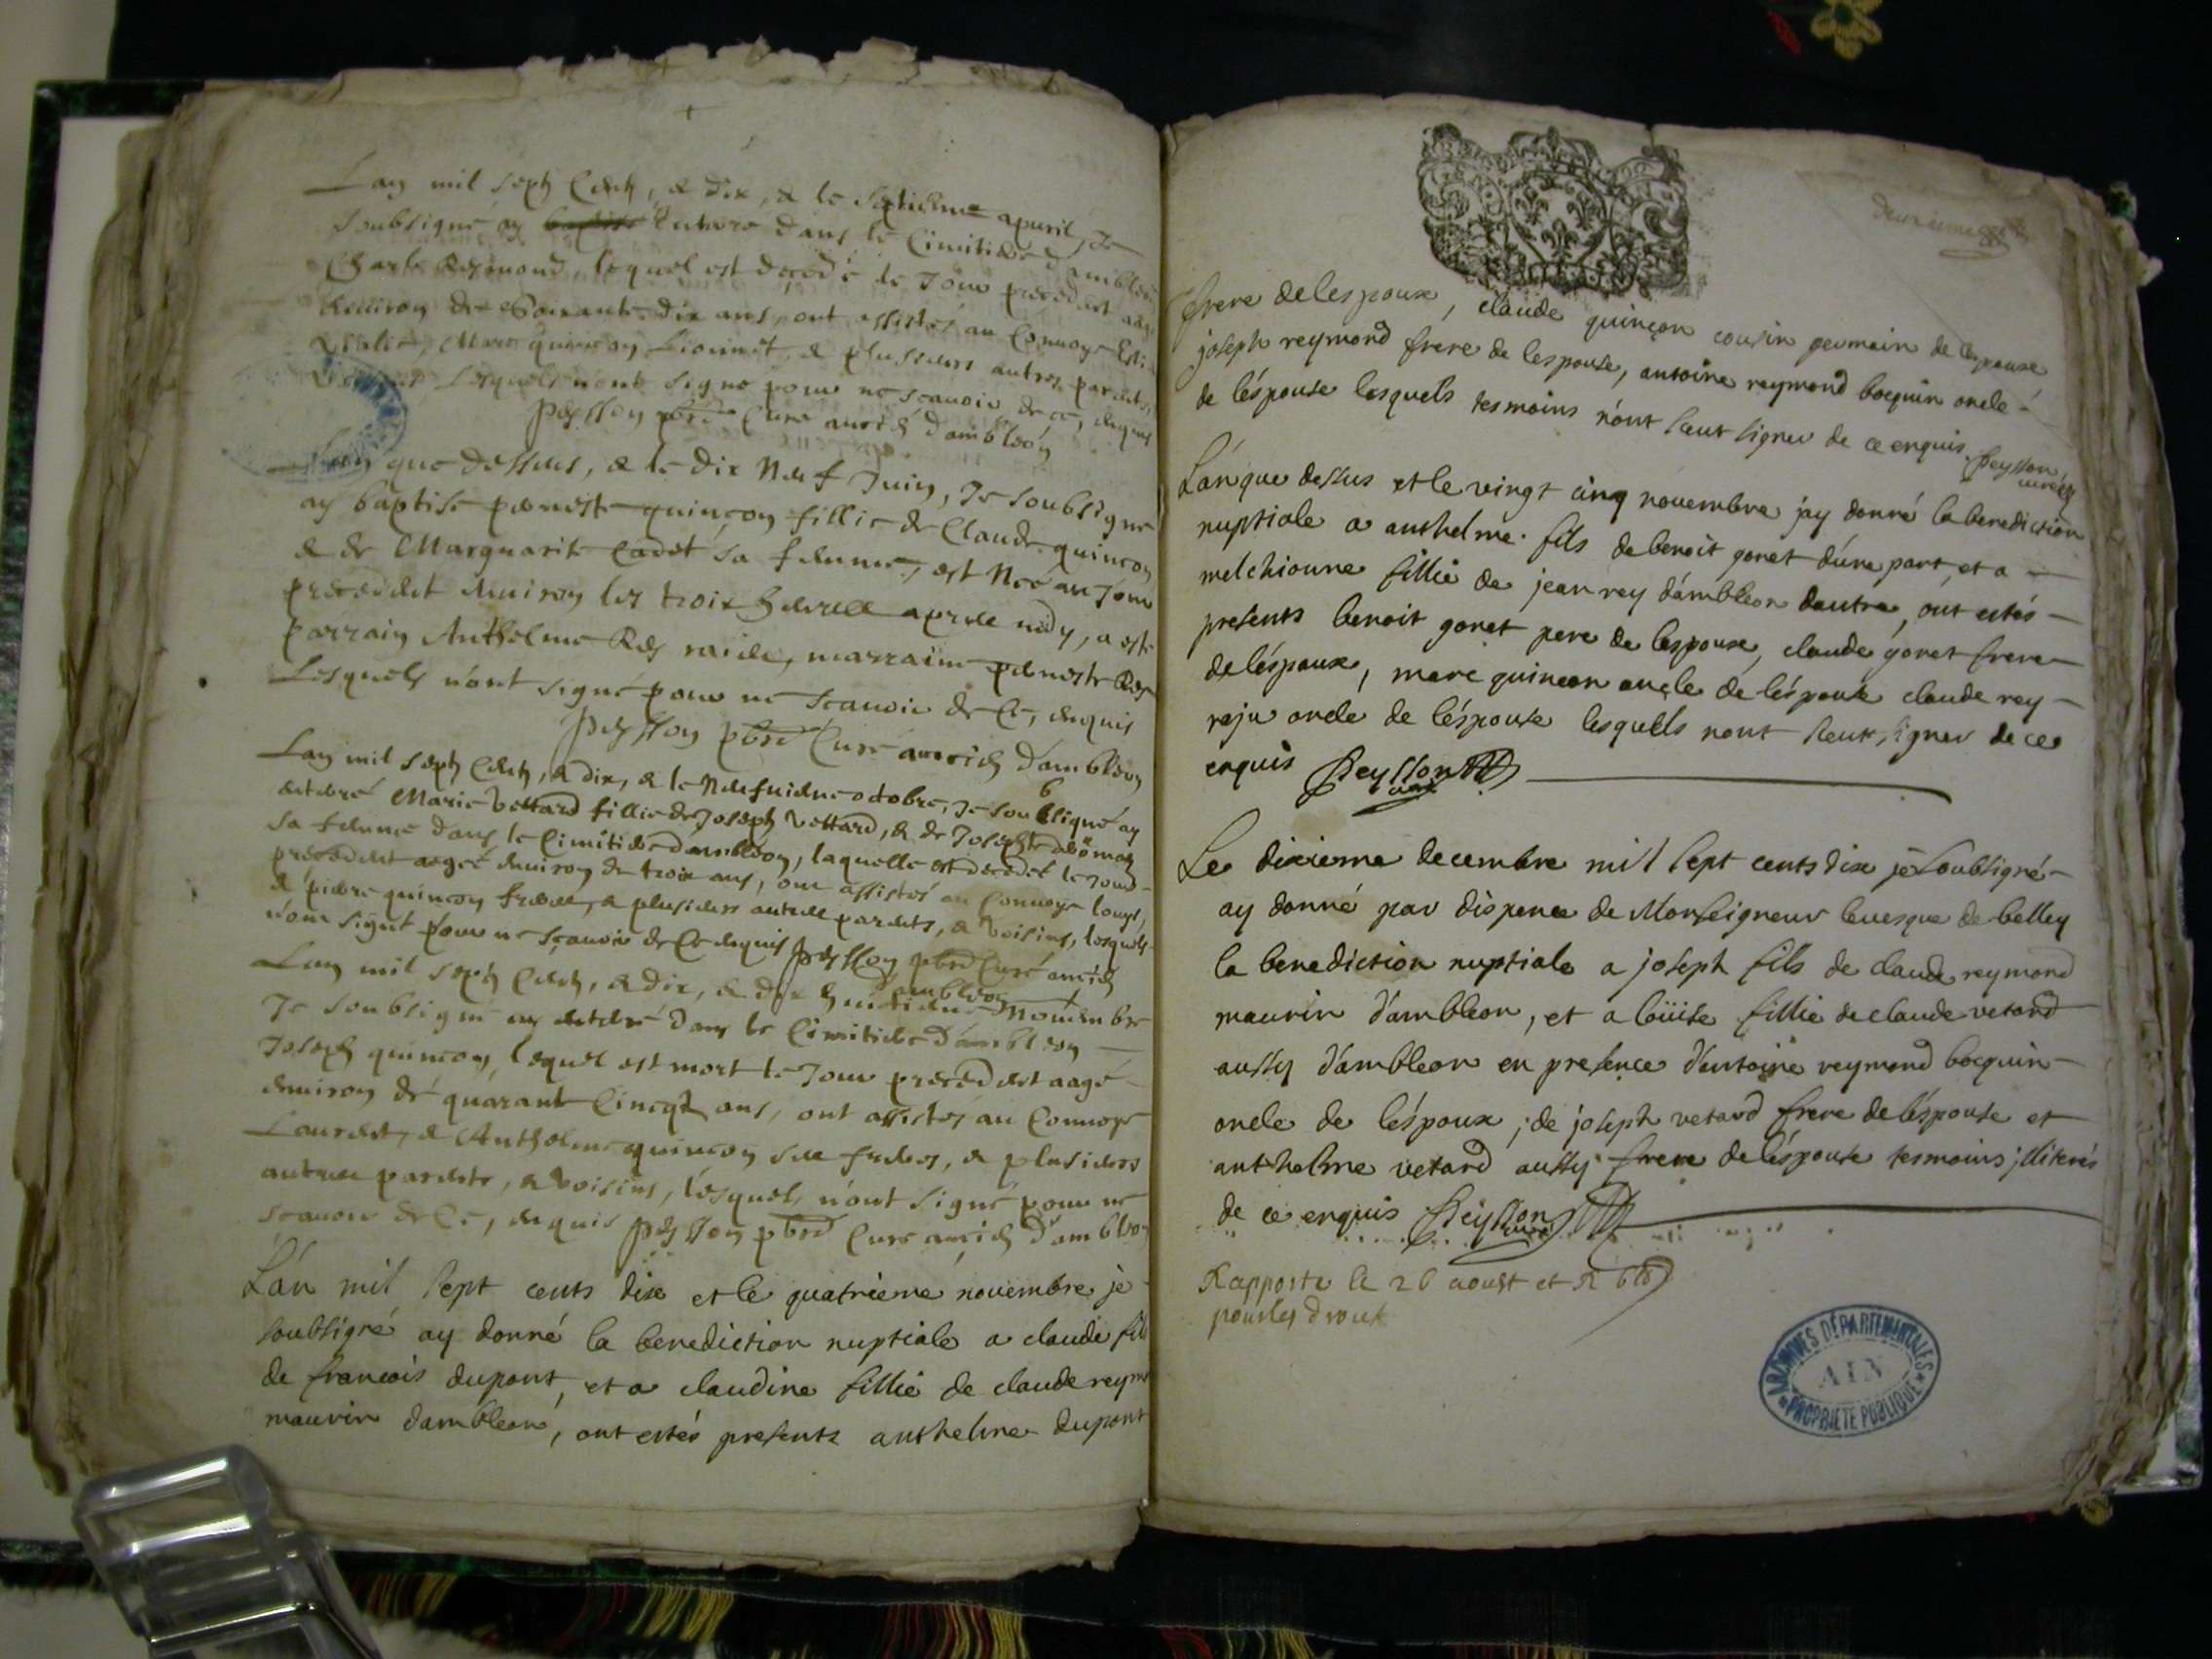 Lan mil sept Cent, & dix, & le Septieme apuril, Je
soubsigné ay enterré dans le Cimitiere d'ambleon
Charle Reymond, lequel est decedé le Jour precedent aagé
Enuiron de Soixante dix ans, ont assistés au Conuoye
Marc quincon Lionnet, & plusieurs autres parents,
lesquels n'ont signé pour ne scauoir de ce, enquis
peysson pbre Curé d'ambleon
L'an que dessus, & le dix Neuf Juin, Je soubsigné
ay baptisé pernette quinçon fillie de Claude quincon
& de Marguarite Cadet sa femme, est Née au Jour
precedent enuiron les trois heures apres midy, a esté
parrain Anthelme Rey raide, marraine pernette Rey
Lesquels n'ont signé pour ne scauoir de Ce, enquis
peysson pbre Curé d'ambleon
Lan mil sept Cent, & dix, & le Neufuieme octobre, Je soubsigné ay
enterré Marie Vettard fillie de Joseph Vettard, & de Josephte
sa femme dans le Cimitiere d'ambleon, laquelle est decedée le Jour
precedent aageé enuiron de trois ans, ont assistés au Conuoye louys,
& pierre quincon freres, & plusieurs autres parents, & voisins, lesquels
n'ont signé pour ne sçauoir de Ce enquis peysson pbre Curé
d'ambleon
Lan mil sept Cent, & dix, & dix huitieme Nouembre
Je soubsigné ay enterré dans le Cimitiere d'ambleon
Joseph quincon, lequel est mort le Jour precedent aagé
enuiron de quarante Cincqz ans, ont assistés au Conuoye
Laurent, & Anthelme quincon ses freres, & plusieurs
autres parents, & voisins, lesquels n'ont signé pour ne
scauoir de Ce, enquis peysson pbre Curé d'ambleon
L'an mil sept cents dix et le quatrieme nouembre je
soubsigné ay donné la benediction nuptiale a claude fils
de francois dupont, et a claudine fillie de claude reymond
maurin d'ambleon, ont estés presents anthelme dupont
deuxieme
frere de lespoux, claude quinçon cousin germain de lespouse
joseph reymond frere de lespouse, antoine reymond bocquin oncle
de léspouse lesquels tesmoins n'ont sceut signer de ce enquis. Peysson
curé
L'an que dessus et le vingt cinq nouembre jay donné la benediction
nuptiale a anthelme fils de benoit gonet d'une part, et a
melchionne fillie de jean rey d'ambleon dautre, ont estés
presents benoit gonet pere de lespoux, claude gonet frere
de léspoux, marc quincon oncle de léspouse claude rey
raju oncle de léspouse lesquells nont sceut signer de ce
enquis Peysson
curé
Le dixieme decembre mil sept cents dix je soubsigné
ay donné par dispence de Monseigneur leuesque de belley
la benediction nuptiale a joseph fils de claude reymond
maurin d'ambleon, et a loüise fillie de claude vetard
aussy d'ambleon en presence d'antoine reymond bocquin
oncle de léspoux, de joseph vetard frere de léspouse et
anthelme vetard aussy frere de léspouse tesmoins jlliterés
de ce enquis Peysson
curé
Rapporté le 26 aoust et R
pour les droits
ARCHIVES DÉPARTEMENTALES
AIN
PROPRIÉTÉ PUBLIQUE